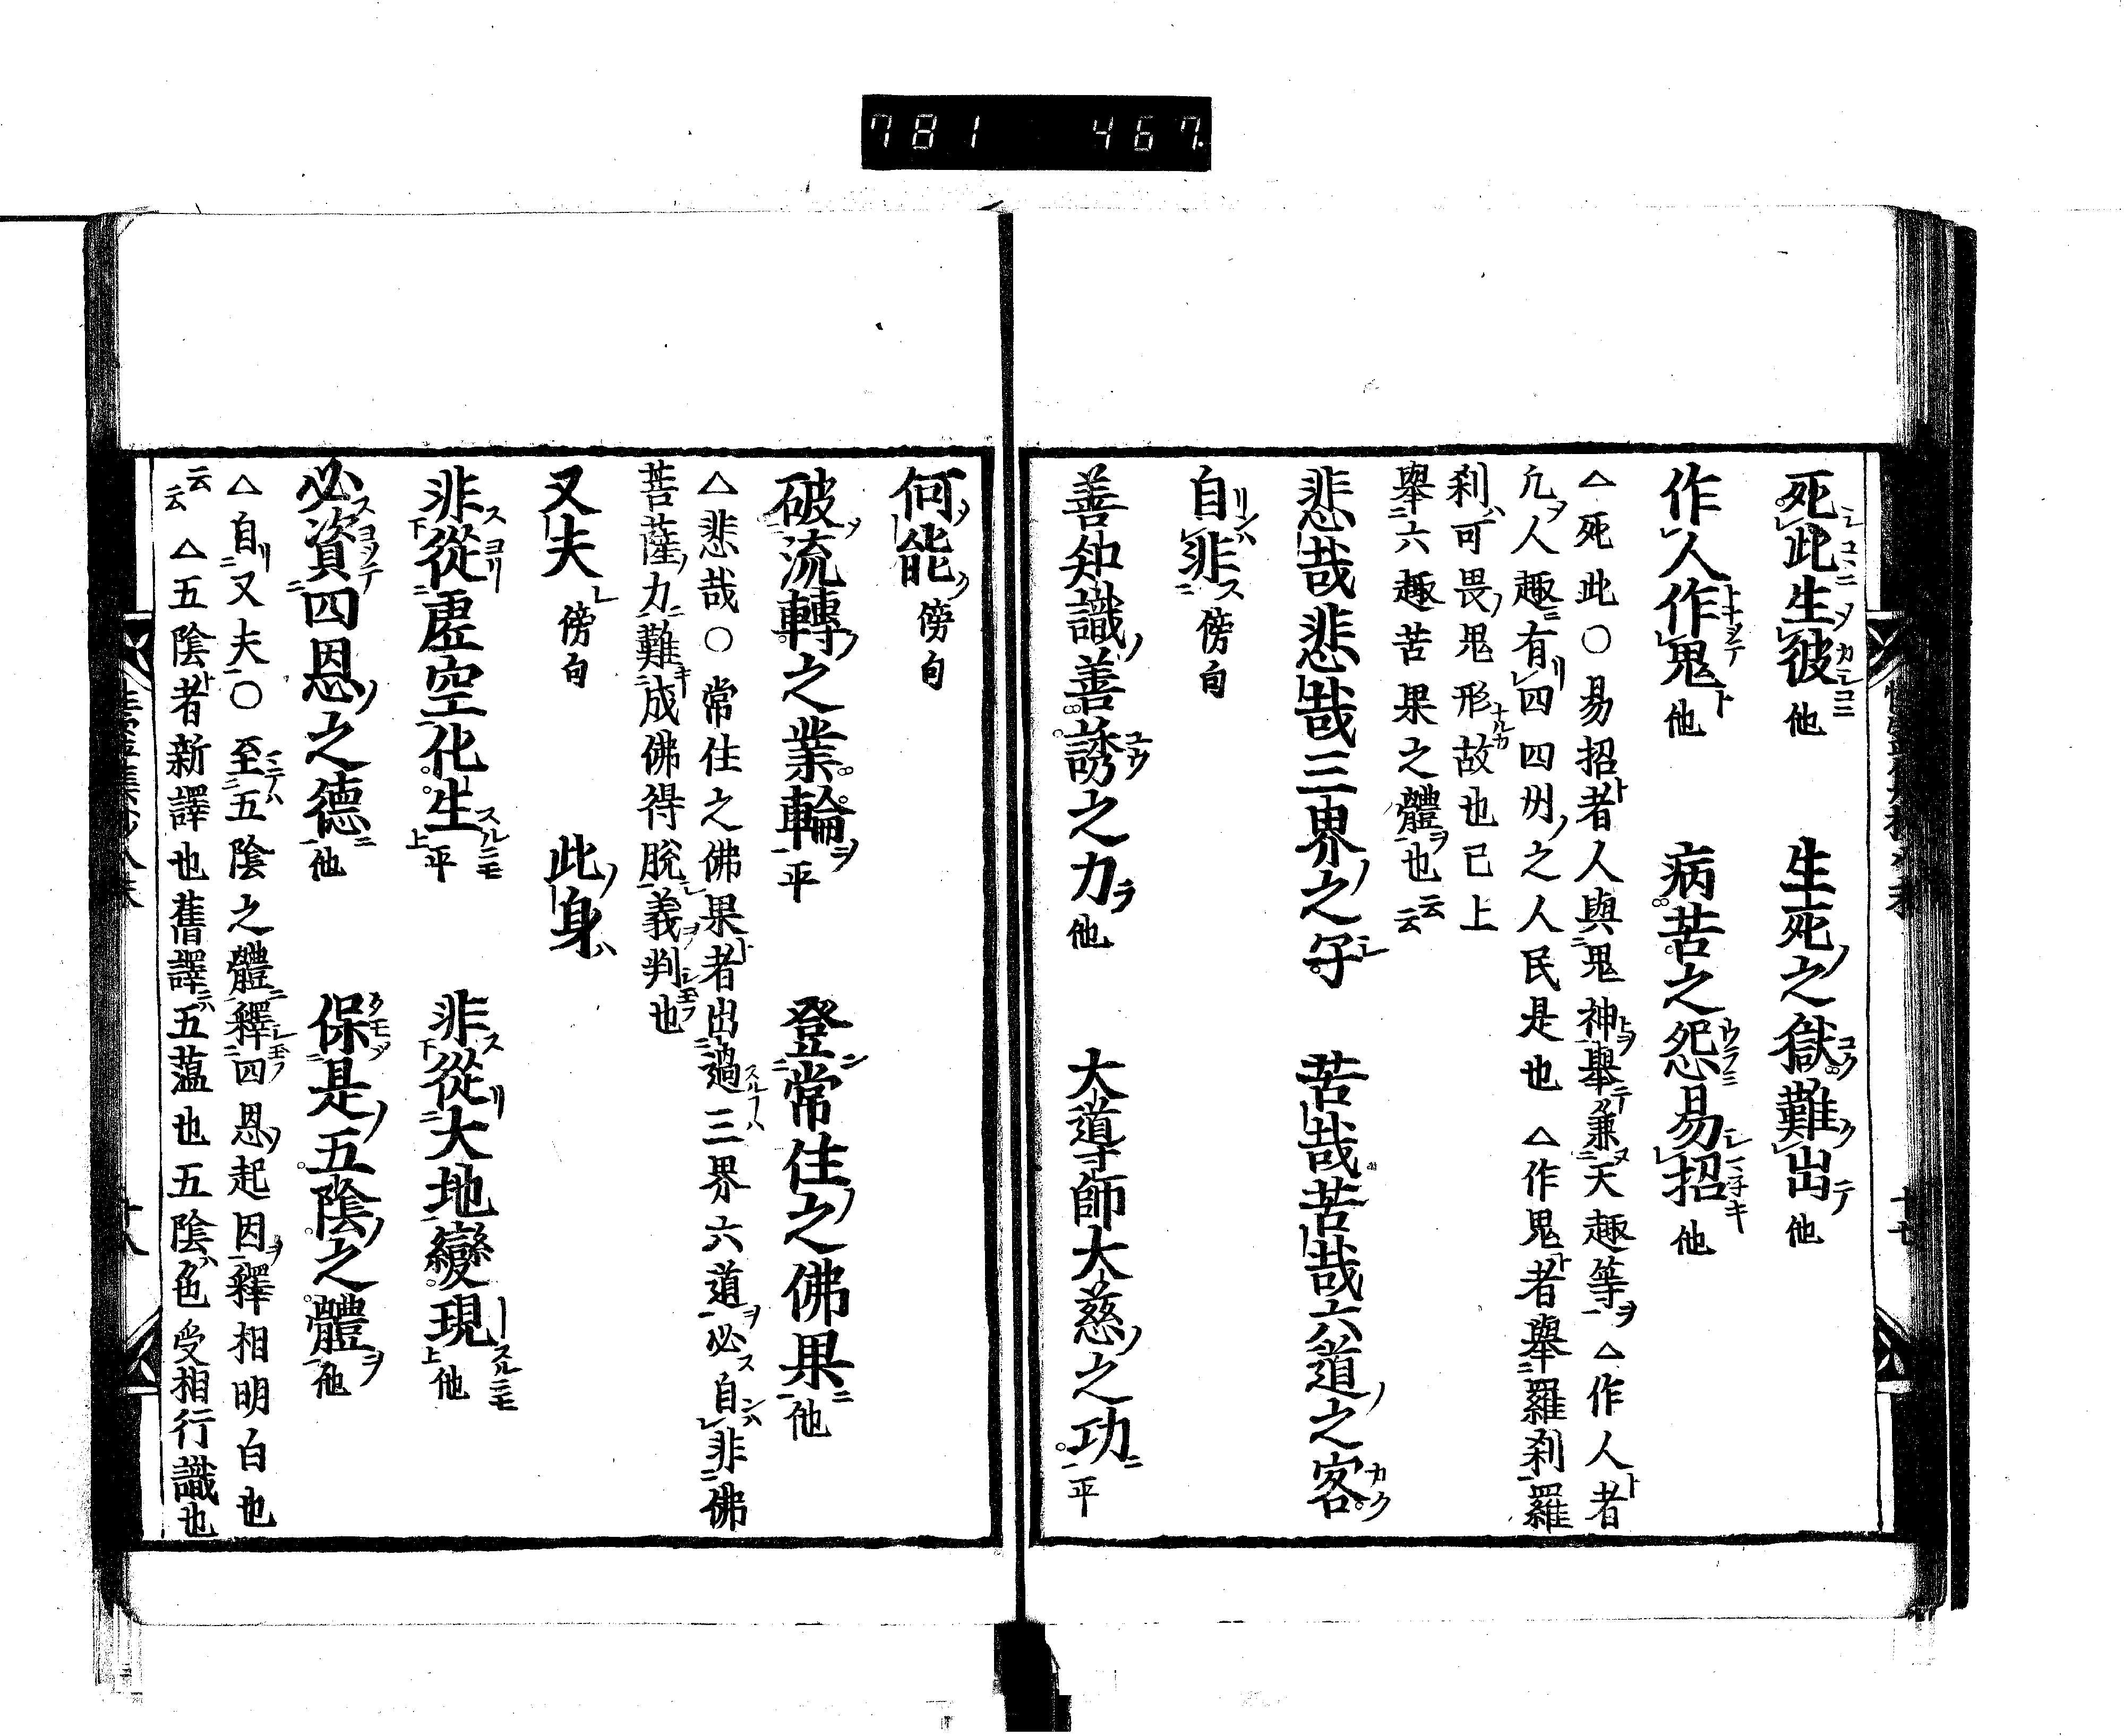 781 467
死此生彼他 生死之獄難出他
作人作鬼他 病苦之怨易招他
△死此○易招者人與鬼神舉兼天趣等△作人者
凢人趣有四四州之人民是也△作鬼者舉羅刹羅
刹可畏鬼形故也已上
舉六趣苦果之體也云云
悲哉悲哉三界之子 苦哉苦哉六道之客
自非傍句
善知識善誘之力他 大導師大慈之功平
何能傍句
破流轉之業輪平 登常住之佛果他
△悲哉○常住之佛果者出過三界六道必自非佛
菩薩力難成佛得脫義判也
又夫傍句 此身
非從虛空化生平 非從大地變現他
必資四恩之德他 保是五陰之體他
△自又夫○至五陰之體釋四恩起因釋相明白也
云云△五陰者新譯也舊譯五蘊也五陰色受相行識也